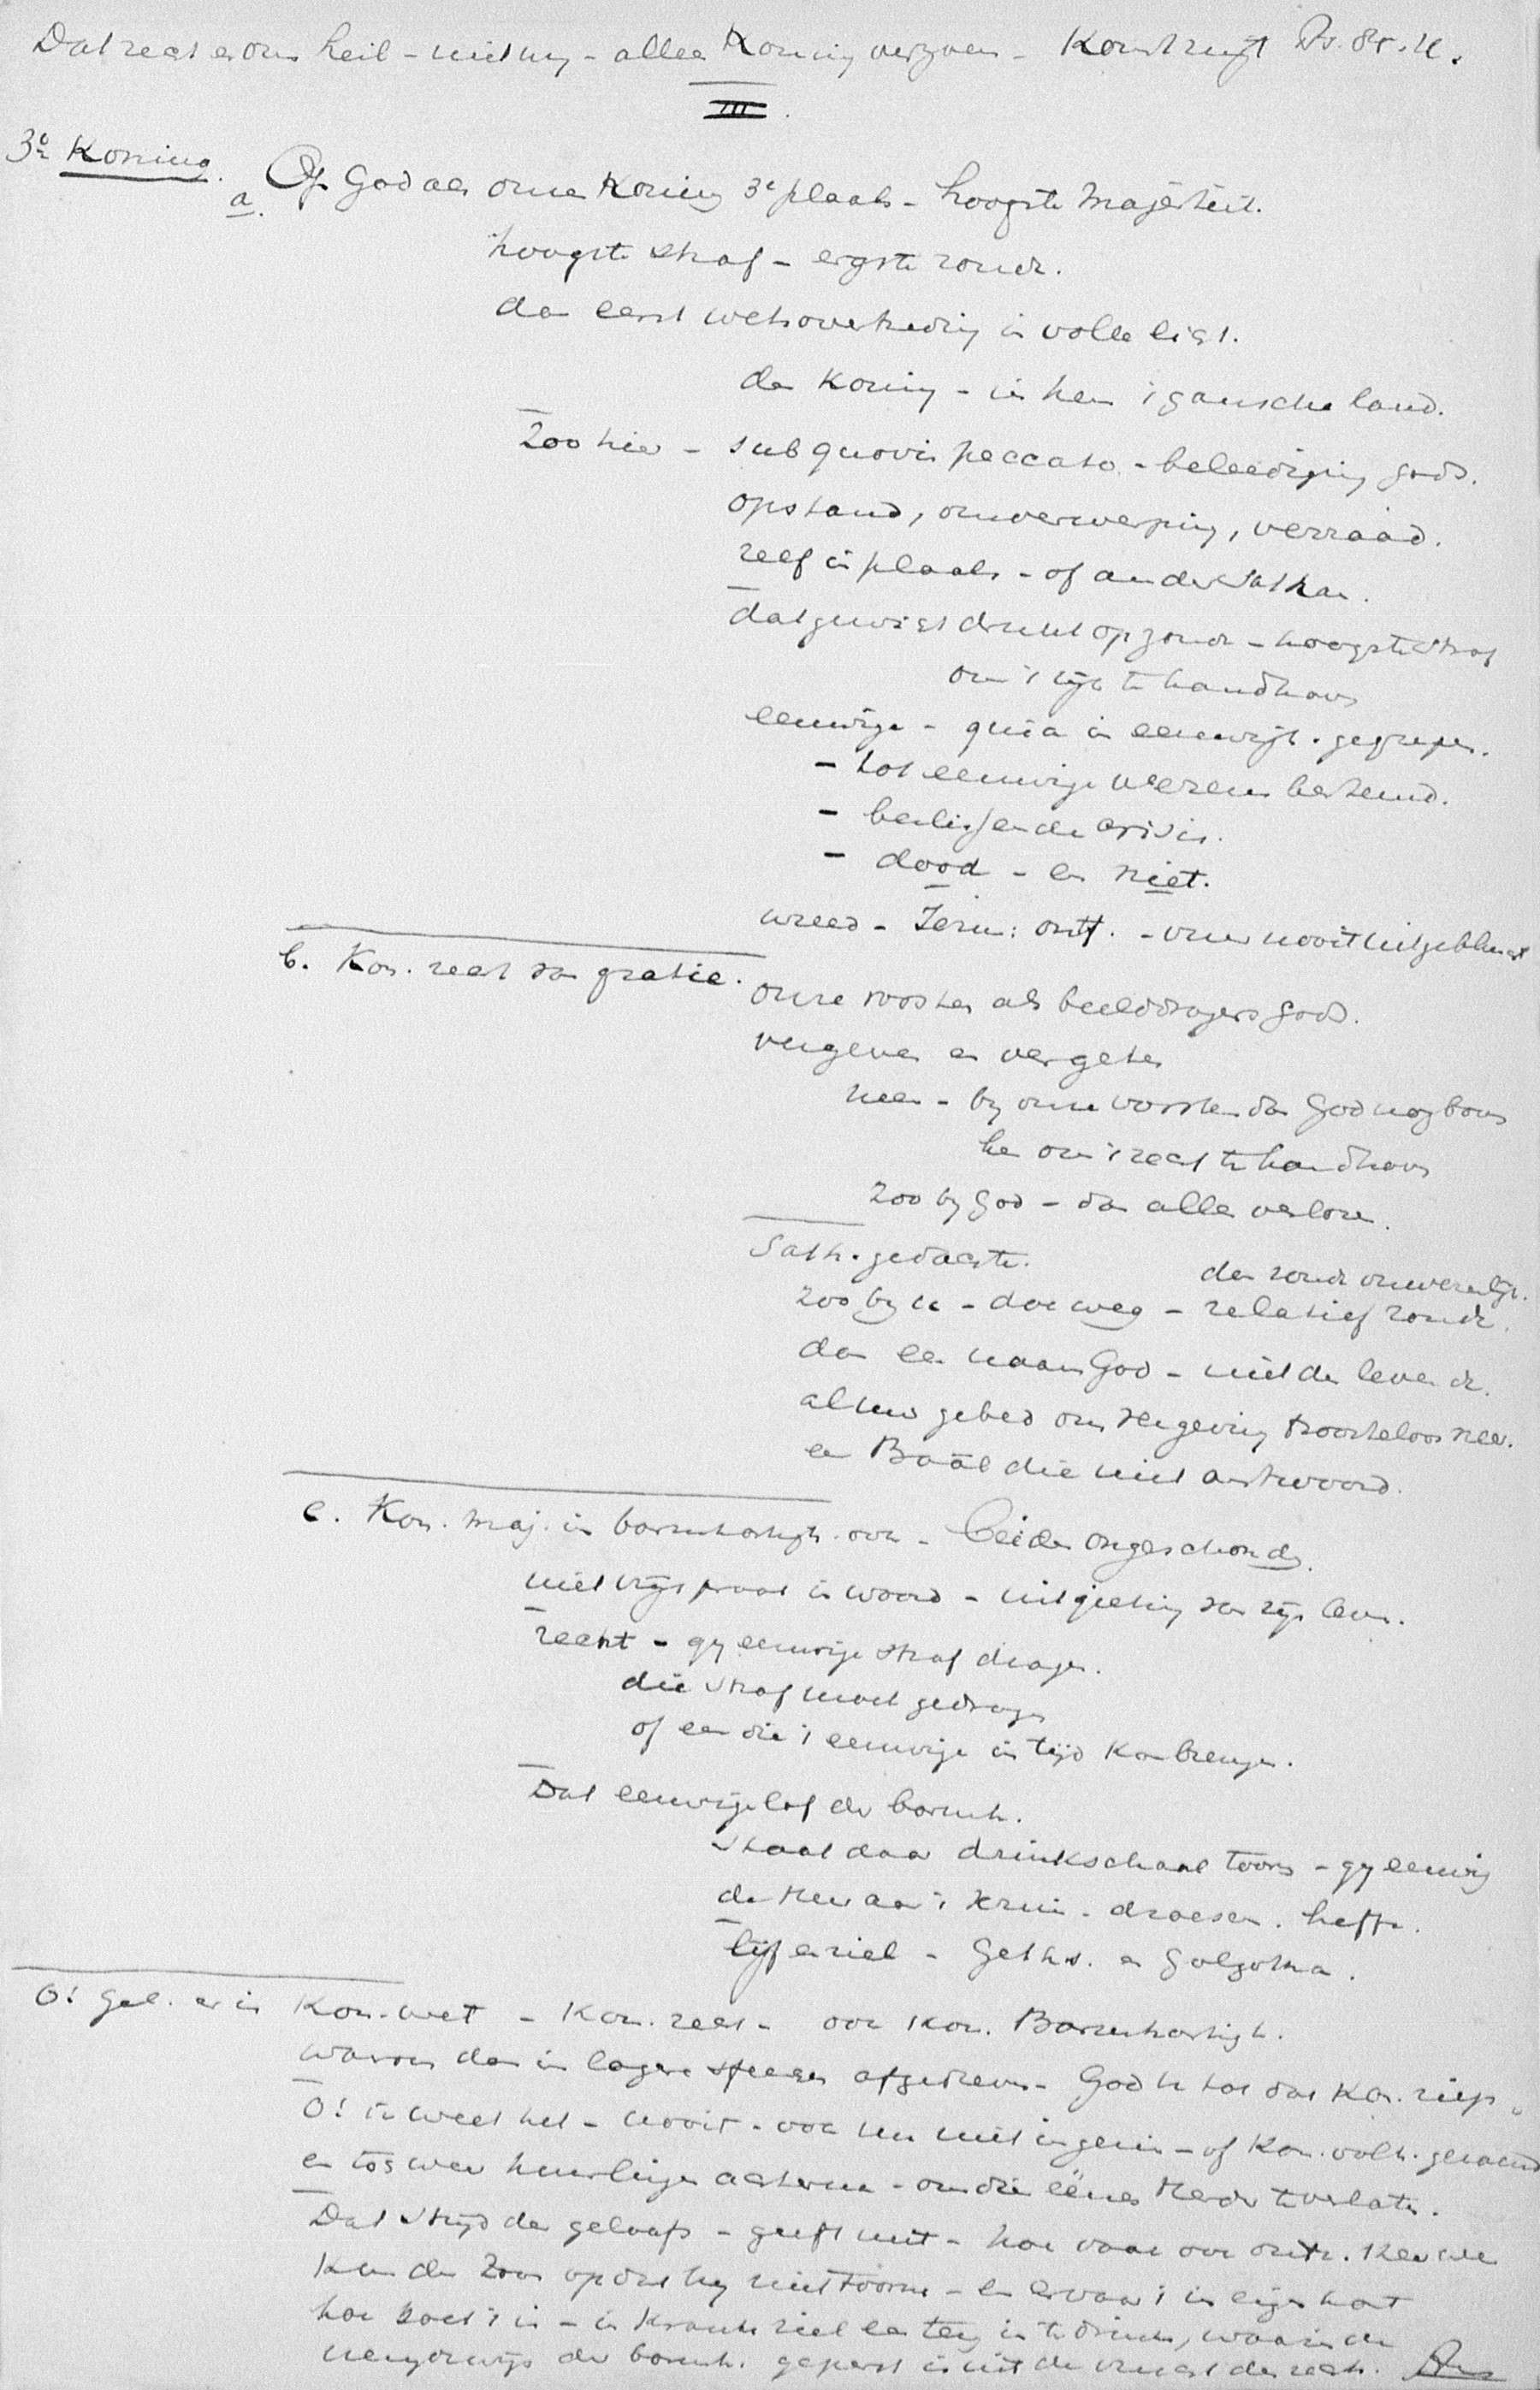 Dat recht en ons heil - niet wy - alleen Koning - Komt Ps. 85.
III.
3e Koning.
a. Op God als onze Koning 3e plaats - hoogste Majesteit.
hoogste straf - ergste zonde.
dan eerst wetsovertreding in volle licht.
de Koning - in hem 't gansche land.
Zoo hier - sub quovis peccato - beleediging Gods.
opstand, omverwerping, verraad.
zelf in plaats - of ander Sathan.
dat gewigt drukt op zonde - hoogste straf
om 't rijk te handhaven
eeuwige - quia in eeuwigh. gegrepen.
- tot eeuwige wezens bestemd.
- beslissende crisis.
- dood - en niet.
wreed - Jezus: ontf. - vuur nooit uitgebluscht
b. Kon. recht van gratie.
onze vorsten als beelddragers Gods.
vergeven en vergeten
neen - by onze vorsten dan God nog boven
hen om 't recht te handhaven
Zoo by God - dan alles verloren.
Sath. gedachte.
dan zonde onwezenlijk.
zoo by u - doe weg - relatief zonde.
dan een naam God - niet de levende.
al uw gebed om vergeving troosteloos neer.
een Baäl die niet antwoord.
c. Kon. maj. in barmhartigh. ook - beiden ongeschonden.
niet vrijspraak in woord - uitgieting van zijn leven.
recht - gy eeuwige straf dragen.
die straf moet gedragen
of een die 't eeuwige in tijd kan brengen.
Dat eeuwige lof der barmh.
Staat daar drinkschaal toorn - gy eeuwig
de Heer aan 't kruis - droesem. heffe.
lijf en ziel - Geths. en Golgotha.
O! Gel. er is Kon. wet - Kon. recht - ook Kon. Barmhartigh.
waarom dan in lagere afgedreven - God u tot dat Kon. riep.
O! ik weet het - nooit - ook nu niet ingezien - of Kon. volh.
en toch weer huurlingen achterna - om die éénen Herder te verlaten.
Dat strijd des geloofs - geeft niet - hoe vaak ook ontr. Heer we
Kus den Zoon opdat hy niet toorne - en ervaar 't in eigen hart
hoe zoet 't is - in kranke ziel een teug in te drinken, waarin de
der barmh. geperst is uit de vrucht des rechts. Amen